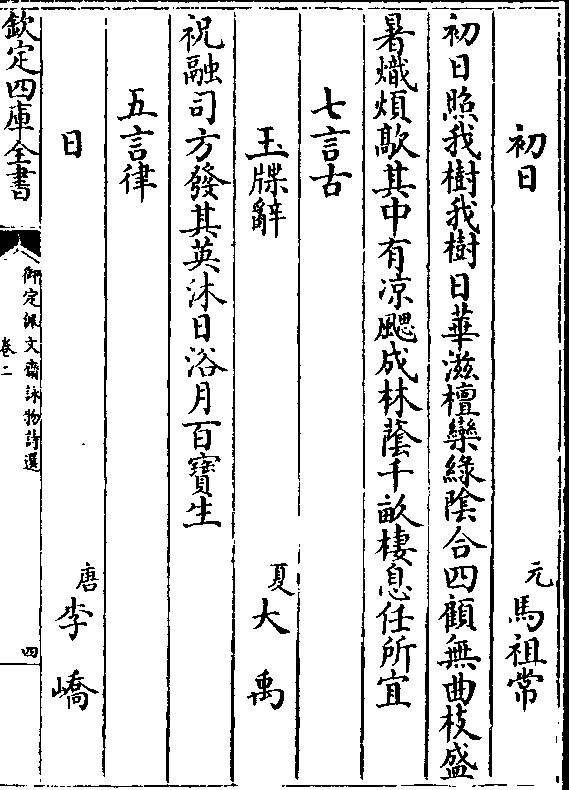 初日　元馬祖常
初日照我樹我樹日華滋檀欒綠陰合四顧無曲枝盛
暑熾煩歊其中有凉颸成林蔭千畝棲息任所宜
七言古
玉牒辭　夏大禹
祝融司方發其英沐日浴月百寶生
五言律
日　唐李嶠
欽定四庫全書　御定佩文齋詠物詩選卷二　四